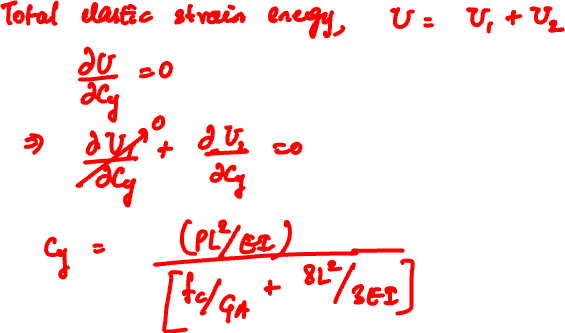 Total elastic strain energy, U = U₁ + U₂
∂U/∂Cy = 0
⇒ ∂U₁/∂Cy⁰ + ∂U₂/∂Cy = 0
Cy = (PL²/EI) / [fc/GA + 8L²/3EI]